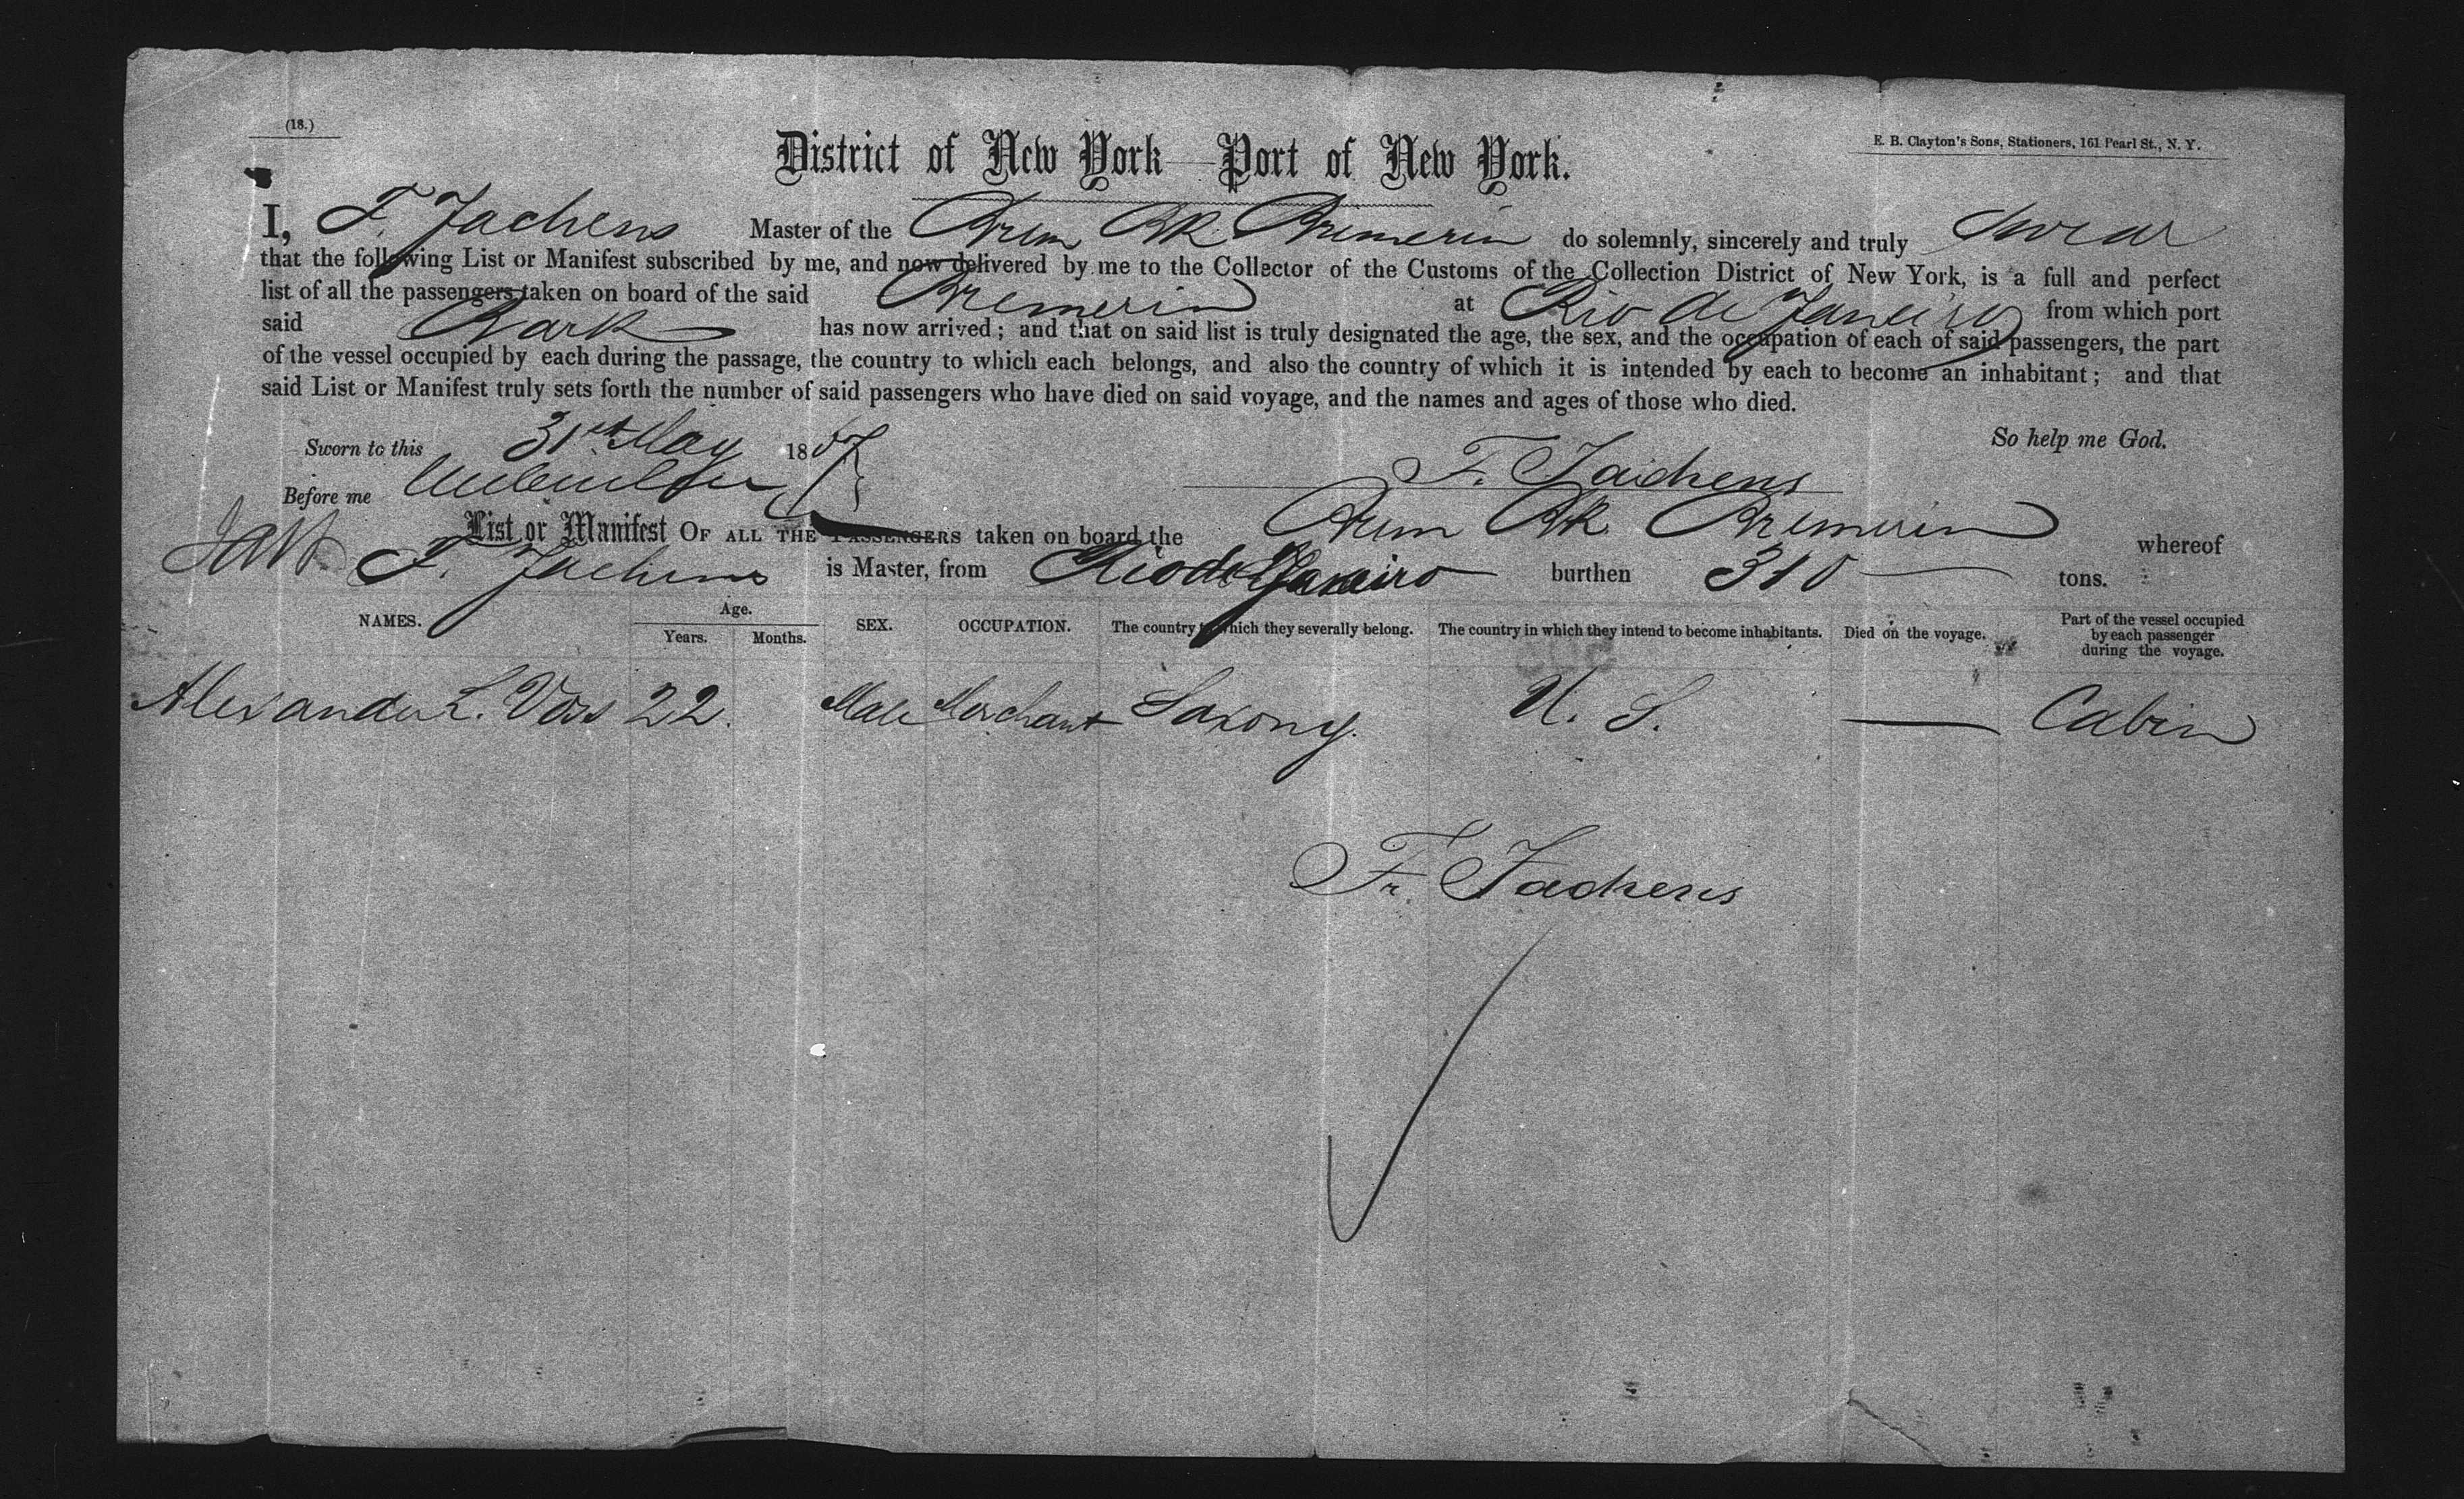 (18.)
E. B. Clayton's Sons, Stationers, 161 Pearl St., N. Y.
District of New York—Port of New York.
I, F. Jachens Master of the Brem Bk Bremerin do solemnly, sincerely and truly swear
that the following List or Manifest subscribed by me, and now delivered by me to the Collector of the Customs of the Collection District of New York, is a full and perfect
list of all the passengers taken on board of the said Bremerin at Rio de Janeiro from which port
said Bark has now arrived; and that on said list is truly designated the age, the sex, and the occupation of each of said passengers, the part
of the vessel occupied by each during the passage, the country to which each belongs, and also the country of which it is intended by each to become an inhabitant; and that
said List or Manifest truly sets forth the number of said passengers who have died on said voyage, and the names and ages of those who died.
So help me God.
Sworn to this 31st May 18
F. Jachens
Before me
List or Manifest OF ALL THE PASSENGERS taken on board the Brem Bk Bremerin whereof
F. Jachens is Master, from Rio de Janeiro burthen 310 tons.
NAMES. Age. Years. Months. SEX. OCCUPATION. The country to which they severally belong. The country in which they intend to become inhabitants. Died on the voyage. Part of the vessel occupied by each passenger during the voyage.
Alexander L. Voss 22. Male Merchant Saxony. U. S. — Cabin
Fr. Jachens